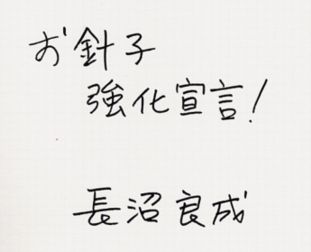 お針子
強化宣言!
長沼良成